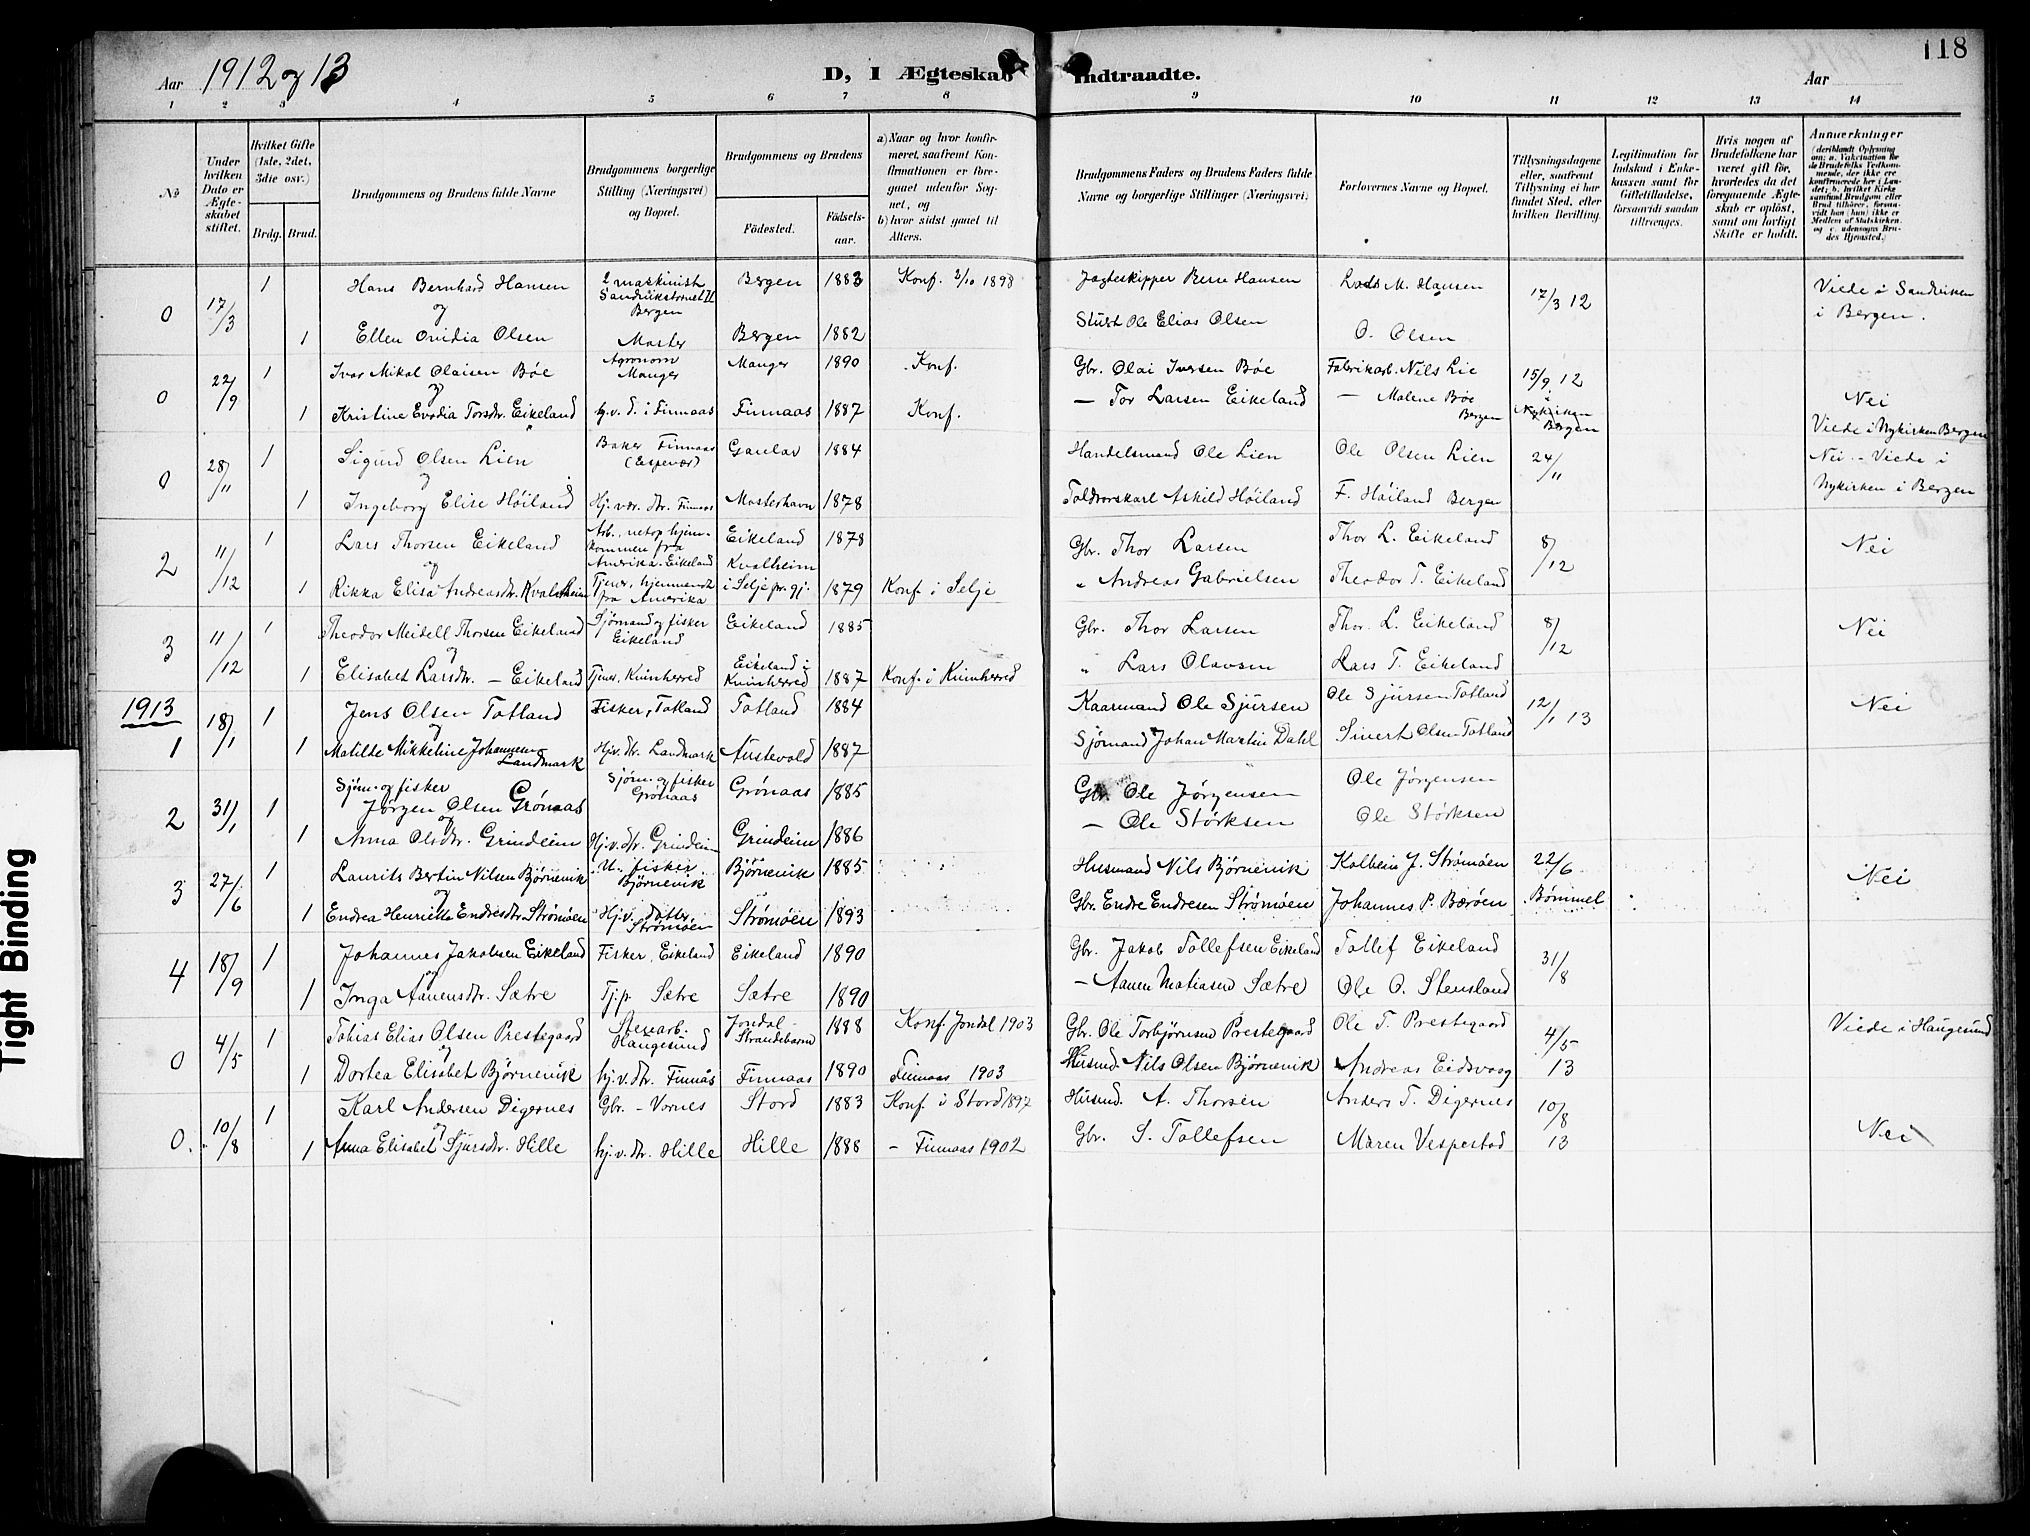 118
Aar 1912 og 13
D, I Ægteskab Indtraadte.
Aar
1 2 3 4 5 6 7 8 9 10 11 12 13 14
No
Under hvilken Dato er Ægteskabet stiftet.
Hvilket Gifte (1ste, 2det, 3die osv.)
Brdg. Brud.
Brudgommens og Brudens fulde Navne
Brudgommens borgerlige Stilling (Næringsvei) og Bopæl.
Brudgommens og Brudens
Födested. Födsels-aar.
a) Naar og hvor konfirmeret, saafremt Konfirmationen er foregaaet udenfor Sognet, og
b) hvor sidst gaaet til Alters.
Brudgommens Faders og Brudens Faders fulde Navne og borgerlige Stillinger (Næringsvei)
Forlovernes Navne og Bopæl.
Tillysningsdagene eller, saafremt Tillysning ei har fundet Sted, efter hvilken Bevilling.
Legitimation for Indskud i Enkekassen samt for Giftetilladelse, forsaavidt saadan tiltrænges.
Hvis nogen af Brudefolkene har været gift før, hvorledes da det foregaaende Ægteskab er opløst, samt om lovligt Skifte er holdt.
Anmærkninger (deriblandt Oplysning om: a. Vakcination for de Brudefolks Vedkommende, der ikke ere konfirmerede her i Landet; b. hvilket Kirkesamfund Brudgom eller Brud tilhører, forsaavidt han (hun) ikke er Medlem af Statskirken, og c. udensogns Brudes Hjemsted.)
0 17/3 1 Hans Bernhard Hansen 2 maskinist Bergen Bergen 1883 Konf. 2/10 1898 Jagteskipper Bern Hansen M. Hansen 17/3 12 Viede i Sandviken i Bergen.
og
1 Ellen Ovidia Olsen Moster Bergen 1882 Ole Elias Olsen O. Olsen
0 22/9 1 Ivar Mikal Olaisen Bøe Agronom Manger Manger 1890 Konf. Gbr. Olai Iversen Bøe Fabrikarb. Nils Lie 15/9 12 i Nykirken Bergen
og
1 Kristine Evodia Torsdr. Eikeland hj.v. d. i Finnaas Finnaas 1887 Konf. — Tor Larsen Eikeland — Malene Bøe Bergen Nei Viede i Nykirken Bergen
0 28/11 1 Sigurd Olsen Lien Baker Finnaas (Espevær) Gaular 1884 Handelsmand Ole Lien Ole Olsen Lien 24/11 Nei - Viede i Nykirken i Bergen
og
1 Ingeborg Elise Høiland Hj. vær. dtr. Finnaas Mosterhavn 1878 Toldvorskarl Askild Høiland F. Høiland Bergen
2 11/12 1 Lars Thorsen Eikeland Arb., netop hjemkommen fra Amerika. Eikeland Eikeland 1878 Gbr. Thor Larsen Thor L. Eikeland 8/12 Nei
og
1 Rikka Elisa Andreasdr. Kvalheim Tjener, hjemvendt fra Amerika Kvalheim i Selje pr.gj. 1879 Konf. i Selje " Andreas Gabrielsen Theodor T. Eikeland
3 11/12 1 Theodor Meidell Thorsen Eikeland Sjømand og fisker Eikeland Eikeland 1885 Gbr. Thor Larsen Thor. L. Eikeland 8/12 Nei
og
1 Elisabet Larsdtr. — Eikeland Tjener, Kvinherred Eikeland i Kvinherred 1887 Konf. i Kvinherred " Lars Olavsen Lars T. Eikeland
1913
1 18/1 1 Jens Olsen Totland Fisker, Totland Totland 1884 Kaarmand Ole Sjursen Ole Sjursen Totland 12/1 13 Nei
og
1 Matilde Mikkeline Johannesen Landmark Hjv. dtr. Landmark Austevold 1887 Sjømand Johan Martin Dahl Sivert Olsen Totland
2 31/1 1 Sjøm- og fisker Jørgen Olsen Grønaas Sjøm- og fisker Grønaas Grønaas 1885 Gbr. Ole Jørgensen Ole Jørgensen
og
1 Anna Olsdtr. Grindeim Hj.v. dtr. Grindeim Grindeim 1886 — Ole Størksen Ole Størksen
3 27/6 1 Laurits Bertin Nilsen Bjørnevik U. fisker Bjørnevik Bjørnevik 1885 Husmand Nils Bjørnevik Kolbein J. Strømøen 22/6 Bømmel Nei
og
1 Endrea Henrikke Endresdtr. Strømøen Hj.v. datter Strømøen Strømøen 1893 Gbr. Endre Endresen Strømøen Johannes P. Bærøen
4 18/9 1 Johannes Jakobsen Eikeland Fisker, Eikeland Eikeland 1890 Gbr. Jakob Tollefsen Eikeland Tollef Eikeland 31/8
og
1 Inga Aanensdtr. Sætre Tj.p. Sætre Sætre 1890 — Aanen Matiasen Sætre Ole O. Stensland
0 4/5 1 Tobias Elias Olsen Prestegaard Stenarb. Haugesund Jondal Strandebarm 1888 Konf. Jondal 1903 Gbr. Ole Torbjørnsen Prestegaard Ole T. Prestegaard 4/5 13 Viede i Haugesund
og
1 Dortea Elisabet Bjørnevik hj.v. dtr. Finnås Finnaas 1890 Finnaas 1903 Husmd. Nils Olsen Bjørnevik Andreas Eidsvaag
0. 10/8 1 Karl Andersen Digernes Gbr. - Vornes Stord 1883 Konf. i Stord 1897 Husmd. A. Thorsen Anders T. Digernes 10/8 13 Nei
og
1 Anna Elisabet Sjursdtr. Hille hj.v. dtr. Hille Hille 1888 — Finnaas 1902 Gbr. S. Tollefsen Maren Vespestad
Tight Binding